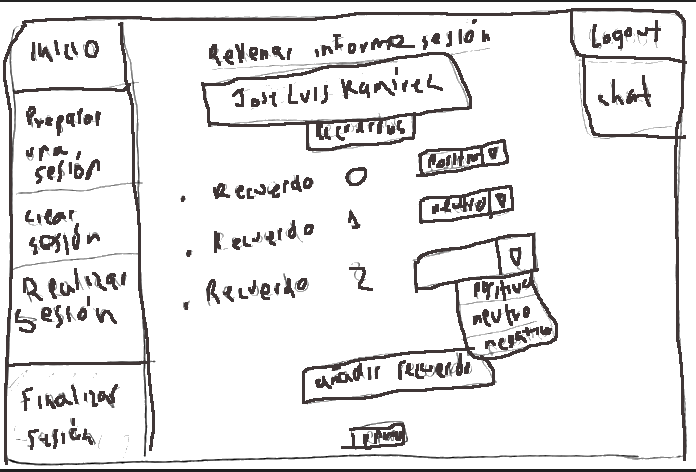 Inicio
Preparar
una
sesión
crear
sesión
Realizar
Sesión
Finalizar
sesión
Rellenar informe sesión
Jose Luis Ramirez
Recuerdos
Recuerdo 0 positivo
Recuerdo 1 neutro
Recuerdo 2
positivo
neutro
negativo
añadir recuerdo
Logout
chat